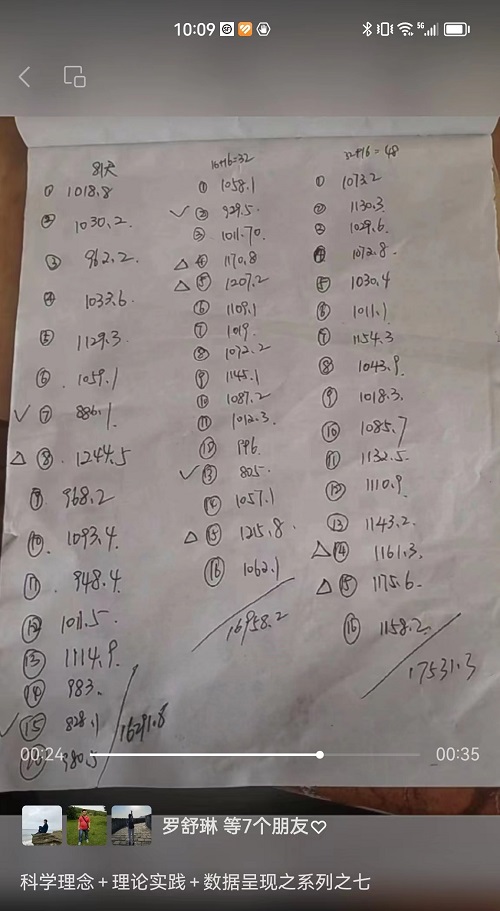 10:09
5G
81天
① 1018.8
② 1030.2.
③ 962.2.
④ 1033.6
⑤ 1129.3.
⑥ 1059.1
✓ ⑦ 886.1
△ ⑧ 1244.5
⑨ 968.2
⑩ 1093.4.
⑪ 948.4
⑫ 1011.5.
⑬ 1114.9.
⑭ 983.
✓ ⑮ 828.1
⑯ 980.5
16291.8
16+16=32
① 1058.1
✓ ② 929.5.
③ 1011.70.
△ ④ 1170.8
△ ⑤ 1207.2
⑥ 1109.1
⑦ 1019.
⑧ 1072.2
⑨ 1145.1
⑩ 1087.2
⑪ 1012.3.
⑫ 996.
✓ ⑬ 805.
⑭ 1057.1
△ ⑮ 1215.8.
⑯ 1062.1
16958.2
32+16=48
① 1073.2
② 1130.3.
③ 1029.6.
④ 1072.8.
⑤ 1030.4
⑥ 1011.1
⑦ 1154.3
⑧ 1043.9.
⑨ 1018.3.
⑩ 1085.7
⑪ 1132.5.
⑫ 1110.9.
⑬ 1143.2.
△ ⑭ 1161.3.
△ ⑮ 1175.6.
⑯ 1158.2.
17531.3
00:24
00:35
罗舒琳 等7个朋友♡
科学理念＋理论实践＋数据呈现之系列之七